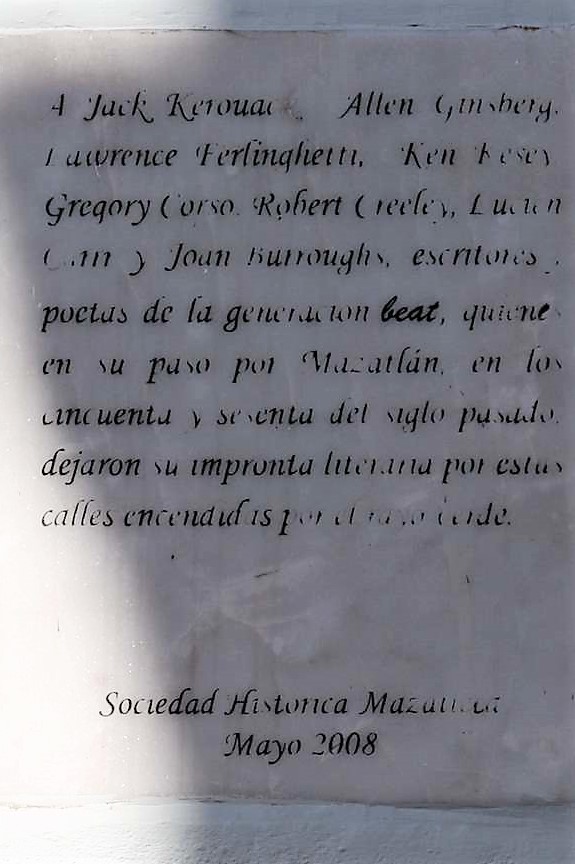 A Jack Kerouac, Allen Ginsberg,
Lawrence Ferlinghetti, Ken Kesey
Gregory Corso, Robert Creeley, Lucien
Carr y Joan Burroughs, escritores y
poetas de la generacion beat, quienes
en su paso por Mazatlán, en los
cincuenta y sesenta del siglo pasado,
dejaron su impronta literaria por estas
calles encendidas por el rayo verde.
Sociedad Historica Mazatleca
Mayo 2008